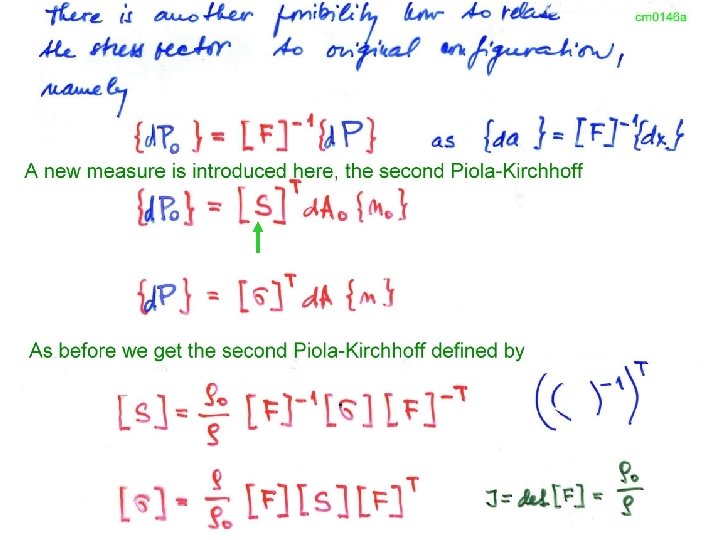 cm0146a
There is another possibility how to relate
the stress vector to original configuration,
namely
{dP₀} = [F]⁻¹{dP} as {da} = [F]⁻¹{dx}
A new measure is introduced here, the second Piola-Kirchhoff
{dP₀} = [S]ᵀ dA₀ {n₀}
{dP} = [σ]ᵀ dA {n}
As before we get the second Piola-Kirchhoff defined by
[S] = ρ₀/ρ [F]⁻¹[σ][F]⁻ᵀ (( )⁻¹)ᵀ
[σ] = ρ/ρ₀ [F][S][F]ᵀ J = det[F] = ρ₀/ρ